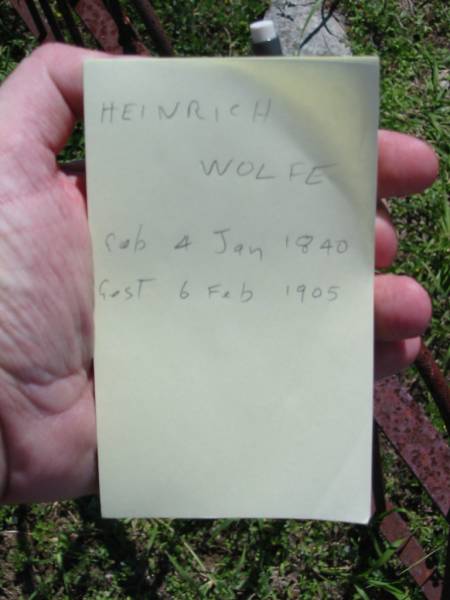 HEINRICH
WOLFE
Geb 4 Jan 1840
Gest 6 Feb 1905